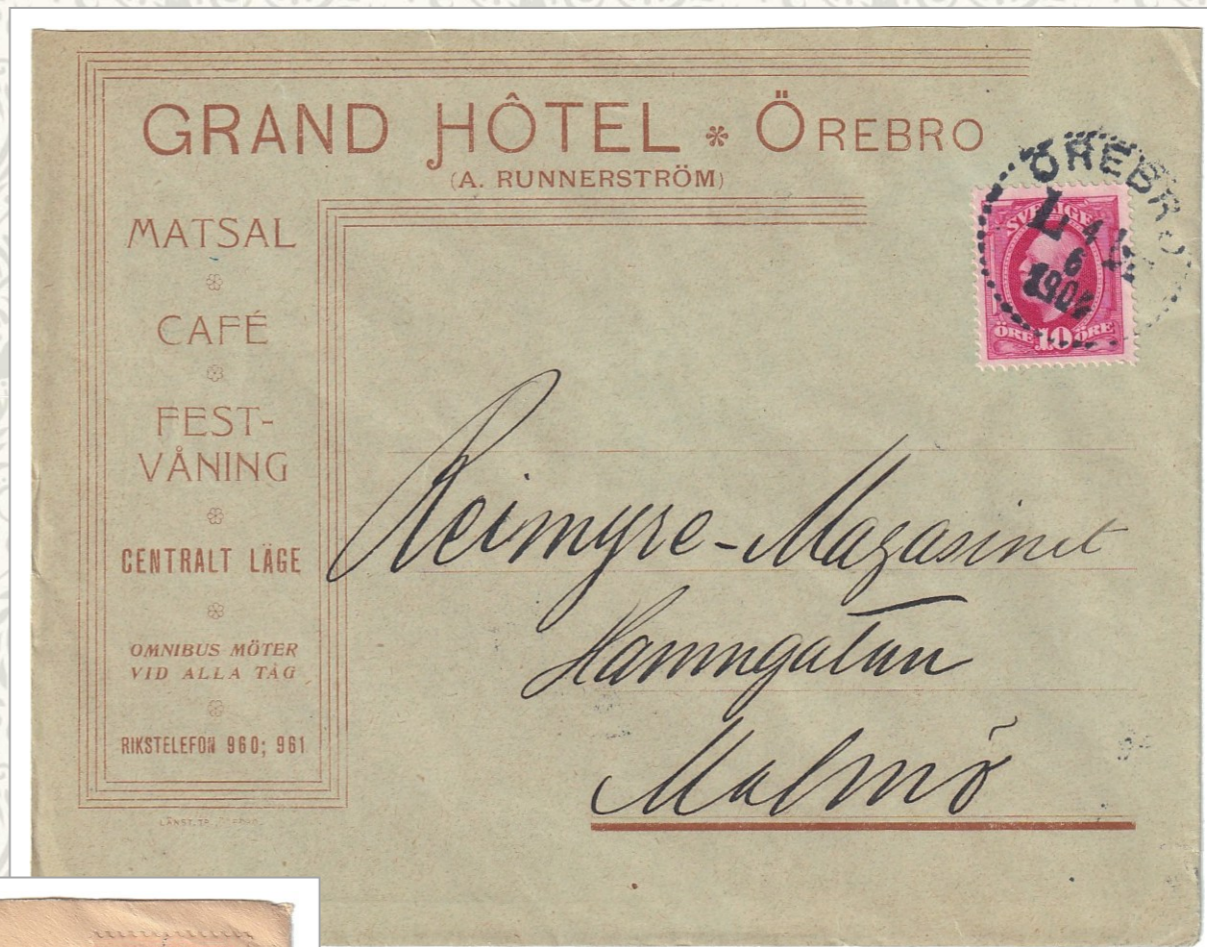 GRAND HÔTEL * ÖREBRO
(A. RUNNERSTRÖM)
MATSAL
CAFÉ
FEST-
VÅNING
CENTRALT LÄGE
OMNIBUS MÖTER
VID ALLA TÅG
RIKSTELEFON 960; 961
ÖREBRO
L
6
SVERIGE
ÖRE 10 ÖRE
Reimyre-Magasinet
Hamngatan
Malmö